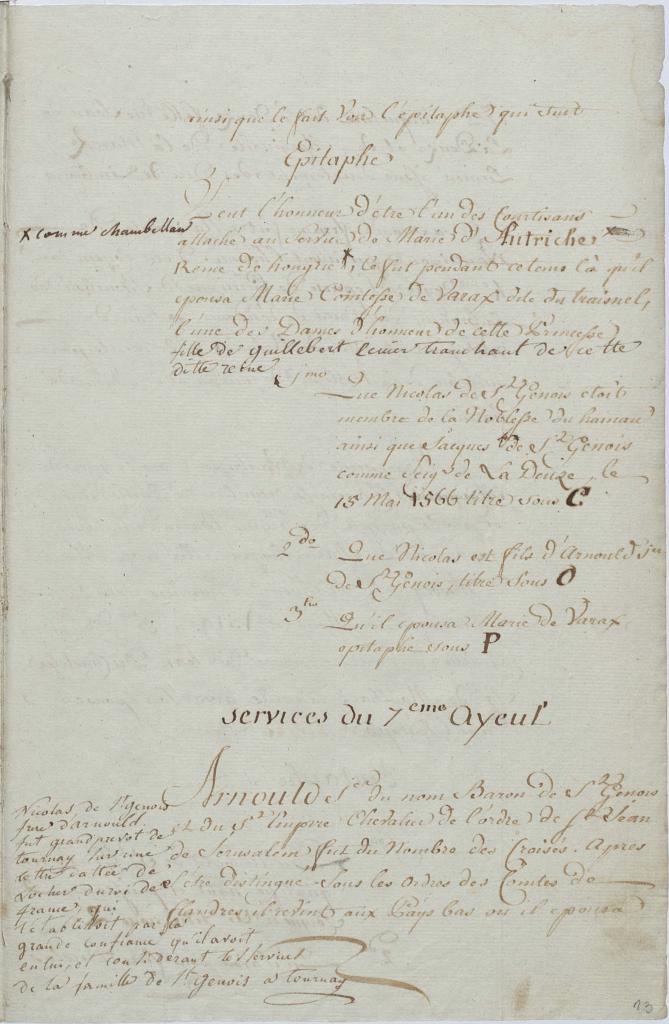 ainsi que le fait voir l'epitaphe qui suit
Epitaphe
Il eut l'honneur d'être l'un des Courtisans
x comme chambellan
attaché au Service de Marie d'Autriche x
Reine de hongrie x, ce fut pendant ce tems là qu'il
epousa Marie Comtesse de Varax dite du traisnel,
l'une des Dames d'honneur de cette Princesse
fille de guillebert Ecuier tranchant de cette
ditte reine
1mo
Que Nicolas de St Genois etoit
membre de la Noblesse du hainau
ainsi que Jacques de St Genois
comme Seigr de La Deuze, le
15 Mai 1566 titre sous C
2do Que Nicolas est fils d'Arnould
de St Genois, titre sous O
3tio Qu'il epousa Marie de Varax,
epitaphe sous P
services du 7eme Ayeul
Arnould du nom Baron de St Genois
et du St Empire Chevalier de l'ordre de St Jéan
de Jerusalem fut du Nombre des Croisés. Apres
s'etre distingué sous les ordres des Comtes de
flandres il revint aux Pays bas ou il epousa
Nicolas de St genois
frere d'arnould
fut grand prevot de
tournay sur une
lettre dattée de
Locher du roi de
france, qui
l'établissoit par la
grande confiance qu'il avoit
en lui, et considerant les services
de la famille de St genois a tournay
23